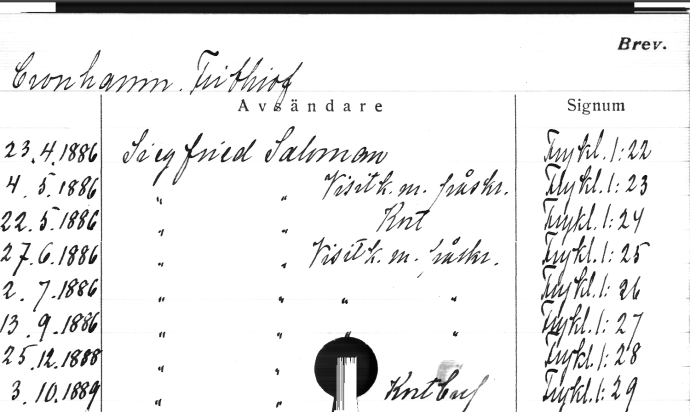 Brev.
Cronhamn. Frithiof
Avsändare Signum
23.4.1886 Siegfried Saloman Trykl. 1:22
4.5.1886 " " Visitk. m. påskr. Trykl. 1:23
22.5.1886 " " Kort Trykl. 1:24
27.6.1886 " " Visitk. m. påskr. Trykl. 1:25
2.7.1886 " " " " Trykl. 1:26
13.9.1886 " " " " Trykl. 1:27
25.12.1888 " " Trykl. 1:28
3.10.1889 " " Kortbref Trykl. 1:29